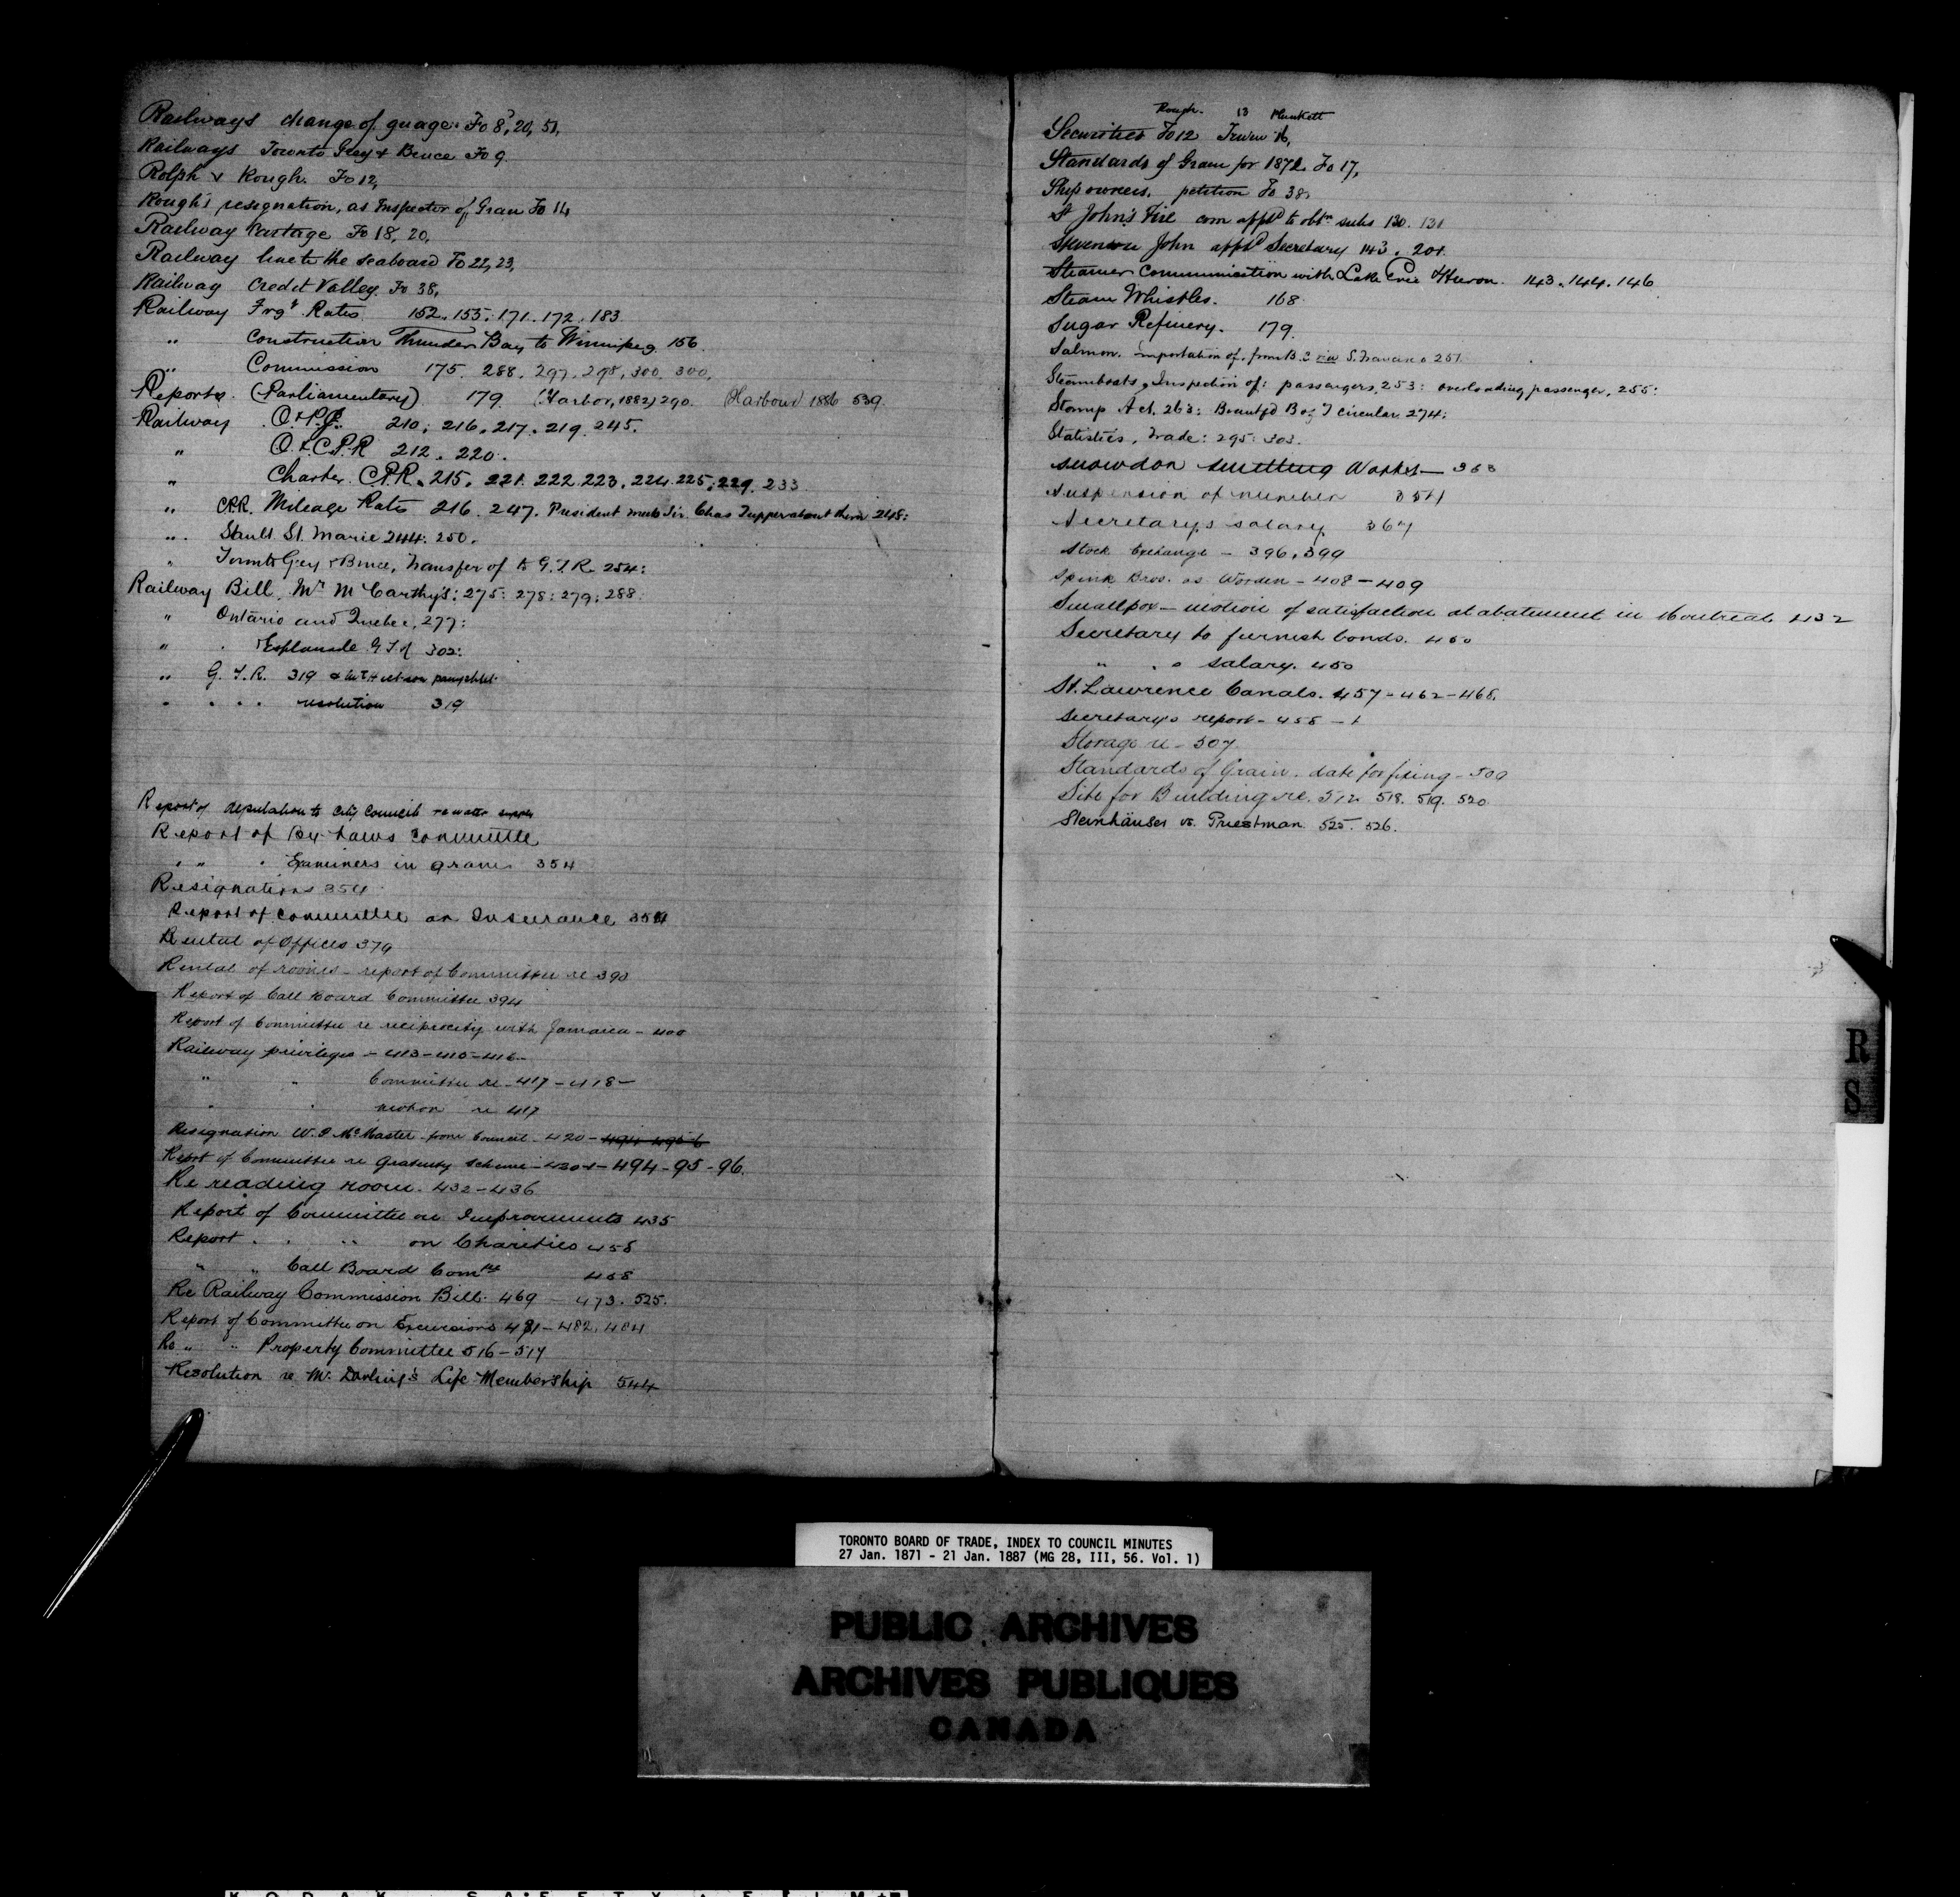 Railways change of guage. Fo 8, 20, 51,
Railways Toronto Grey & Bruce Fo 9.
Rolph v Rough. Fo 12,
Rough's resignation, as Inspector of Grain Fo 14
Railway Cartage Fo 18, 20,
Railway line to the seaboard Fo 22, 23,
Railway Credit Valley. Fo 38,
Railway Frgt Rates 152. 153. 171. 172. 183.
" Construction Thunder Bay to Winnipeg 156.
" Commission 175. 288. 297. 298, 300. 300.
Reports. (Parliamentary) 179. (Harbor, 1882) 290. (Harbour) 1886 539.
Railway O. & P.J. 210; 216. 217. 219. 245.
" O. & C.P.R 212. 220.
" Charter C.P.R. 215. 221. 222. 223. 224. 225. 229. 233.
" C.P.R. Mileage Rates 216. 247. President meets Sir. Chas Tupper about them 248:
" Sault St. Marie 244: 250.
" Toronto Grey & Bruce, Transfer of to G.T.R. 254:
Railway Bill, Mr McCarthy's: 275: 278: 279: 288:
" Ontario and Quebec, 277:
" . Esplanade G T R 302:
" G. T. R. 319 & pamphlet.
" . . . resolution 319
Report of deputation to City Council re water
Report of By-Laws Committee
" " . Examiners in grain 354
Resignations 354
Report of Committee on Insurance 354
Rental of Offices 379
Rental of rooms - report of Committee re 393
Report of Call Board Committee 394
Report of Committee re reciprocity with Jamaica - 400
Railway privileges - 413 - 415 - 416 -
" " Committee re - 417 - 418 -
" " motion re 417
Resignation W. F. McMaster from Council - 420 - 494 495 6
Report of Committee re Gratuity Scheme - 420-1 - 494 - 95 - 96.
Re reading room. 432 - 436
Report of Committee on Improvements 435
Report . . " on Charities 458
" " Call Board Comtee 458
Re Railway Commission Bill. 469 - 473. 525.
Report of Committee on Excursions 481 - 482. 484
Re " " Property Committee 516 - 517
Resolution re Mr. Darling's Life Membership 544
Rough. 13 Plunkett
Securities Fo 12 Irwin 16,
Standards of Grain for 1872. Fo 17,
Ship owners. petition Fo 38,
St John's Fire com appd to obtn subs 130. 131
Stevenson John apptd Secretary 143. 201.
Steamer Communication with Lake Erie & Huron. 143. 144. 146
Steam Whistles. 168.
Sugar Refinery. 179.
Salmon. importation of, from B.C via S. Francisco 251.
Steamboats, Inspection of: passengers, 253: overloading passenger, 255:
Stamp Act. 263: Brantfd B of T circular 274:
Statistics, Trade: 295: 303.
Snowdon Smelting Works — 353
Suspension of member 354
Secretary's salary 367
Stock Exchange - 396, 399
Spink Bros. vs Worden - 408 - 409
Smallpox - motion of satisfaction at abatement in Montreal 432
Secretary to furnish bonds. 450
" . . salary. 450
St. Lawrence Canals. 457 - 462 - 468.
Secretary's report - 458 - 1
Storage re - 507
Standards of Grain. date for fixing - 509
Site for Building re. 512 518. 519. 520.
Steinhäuser vs. Priestman. 525. 526.
R
S
TORONTO BOARD OF TRADE, INDEX TO COUNCIL MINUTES
27 Jan. 1871 - 21 Jan. 1887 (MG 28, III, 56. Vol. 1)
PUBLIC ARCHIVES
ARCHIVES PUBLIQUES
CANADA